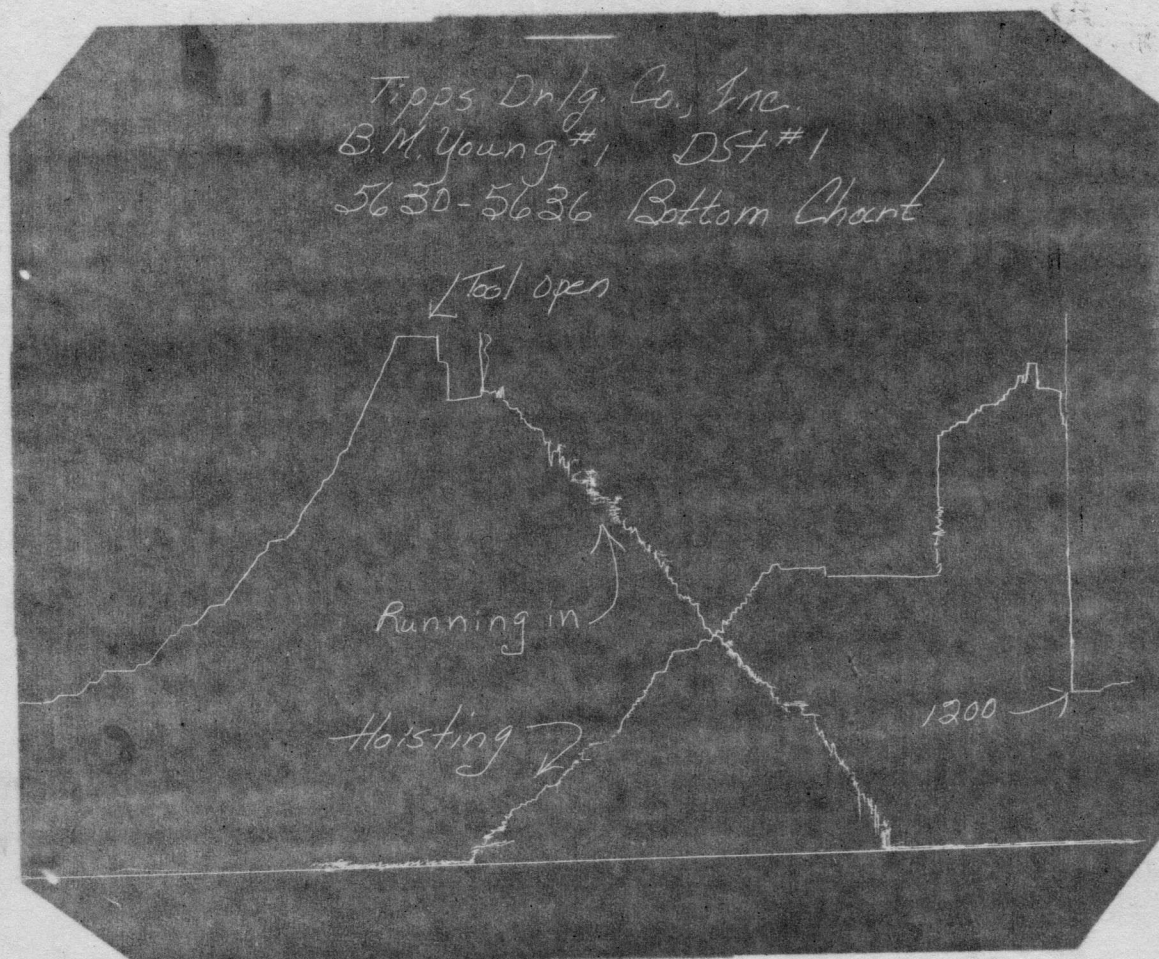 Tipps Drlg. Co., Inc.
B.M. Young #1 DSt #1
5630-5636 Bottom Chart
Tool open
Running in
Hoisting
1200